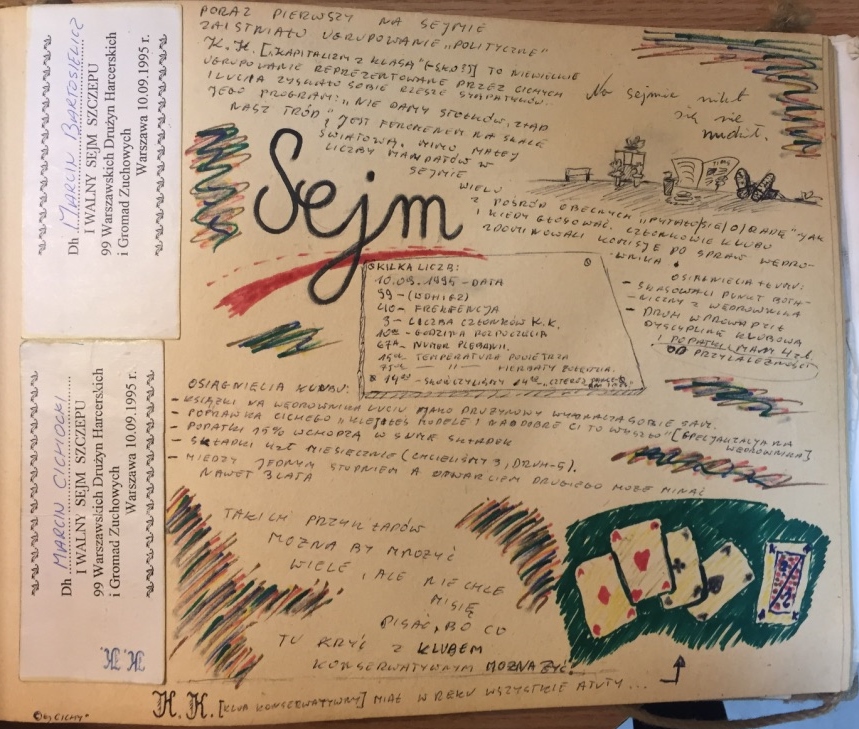 Dh MARCIN BARTOSIEWICZ
I WALNY SEJM SZCZEPU
99 Warszawskich Drużyn Harcerskich
i Gromad Zuchowych
Warszawa 10.09.1995 r.
Dh MARCIN CICHOCKI
I WALNY SEJM SZCZEPU
99 Warszawskich Drużyn Harcerskich
i Gromad Zuchowych
Warszawa 10.09.1995 r.
K.K.
PORAZ PIERWSZY NA SEJMIE
ZAISTNIAŁO UGRUPOWANIE „POLITYCZNE"
K.K. [„KAPITALIZM Z KLASĄ" TO NIEWIELKIE
UGRUPOWANIE REPREZENTOWANE PRZEZ CICHYCH
I LUCIA ZYSKAŁO SOBIE RZESZE SYMPATYKÓW.
JEGO PROGRAM: „NIE DAMY STOŁKÓW, ZKĄD
NASZ TRÓD" JEST FENOMENEM NA SKALE
ŚWIATOWĄ, MIMO MAŁEJ
LICZBY MANDATÓW W
SEJMIE
Na sejmie nikt
się nie
nudził.
Sejm
WIELU
Z POŚRÓD OBECNYCH „PYTAŁO/SIĘ/O/RADĘ" JAK
I KIEDY GŁOSOWAĆ. CZŁONKOWIE KLUBU
ZDOMINOWALI KOMISJE PO SPRAW WĘDRO-
WNIKA.
KILKA LICZB:
10.09.1995 - DATA
99 -
40 - FREKFENCJA
3 - LICZBA CZŁONKÓW K.K.
10 - GODZINA ROZPOCZĘCIA
67A - NUMER PLEBANII.
15 - TEMPERATURA POWIETRZA
75 - —„— HERBATY
19 - SKOŃCZYLIŚMY
OSIĄGNIĘCIA KLUBU:
- SKASOWALI PUNKT BOTA-
NICZNY Z WĘDROWNIKA
- DRUH WPROWADZIŁ
DYSCYPLINĘ KLUBOWĄ
I PODATKI MAMY 4zł.
OD PRZYNALEŻNOŚCI
OSIĄGNIĘCIA KLUBU:
- KSIĄŻKI NA WĘDROWNIKA LUCIU JAKO DRUŻYNOWY WYZNACZA SOBIE SAM.
- POPRAWKA CICHEGO „KLEJĄŁEŚ MODELE I NA DOBRE CI TO WYSZŁO" [SPECJALIZACJA NA
WĘDROWNIKA]
- PODATKI 95% WCHODZĄ W SUMĘ SKŁADEK
- SKŁADKI 4zł MIESIĘCZNIE (CHCIELIŚMY 3, DRUH-5).
- MIĘDZY JEDNYM STOPNIEM A OTWARCIEM DRUGIEGO MOŻE MINĄĆ
NAWET 3 LATA
TAKICH PRZYKŁADÓW
MOŻNA BY MNOŻYĆ
WIELE, ALE NIE CHCE
MI SIĘ
PISAĆ, BO CO
TU KRYĆ Z KLUBEM
KONSERWATYWNYM MOŻNA ŻYĆ.
K.K. [KLUB KONSERWATYWNY] MIAŁ W RĘKU WSZYSTKIE ATUTY...
© by CICHY